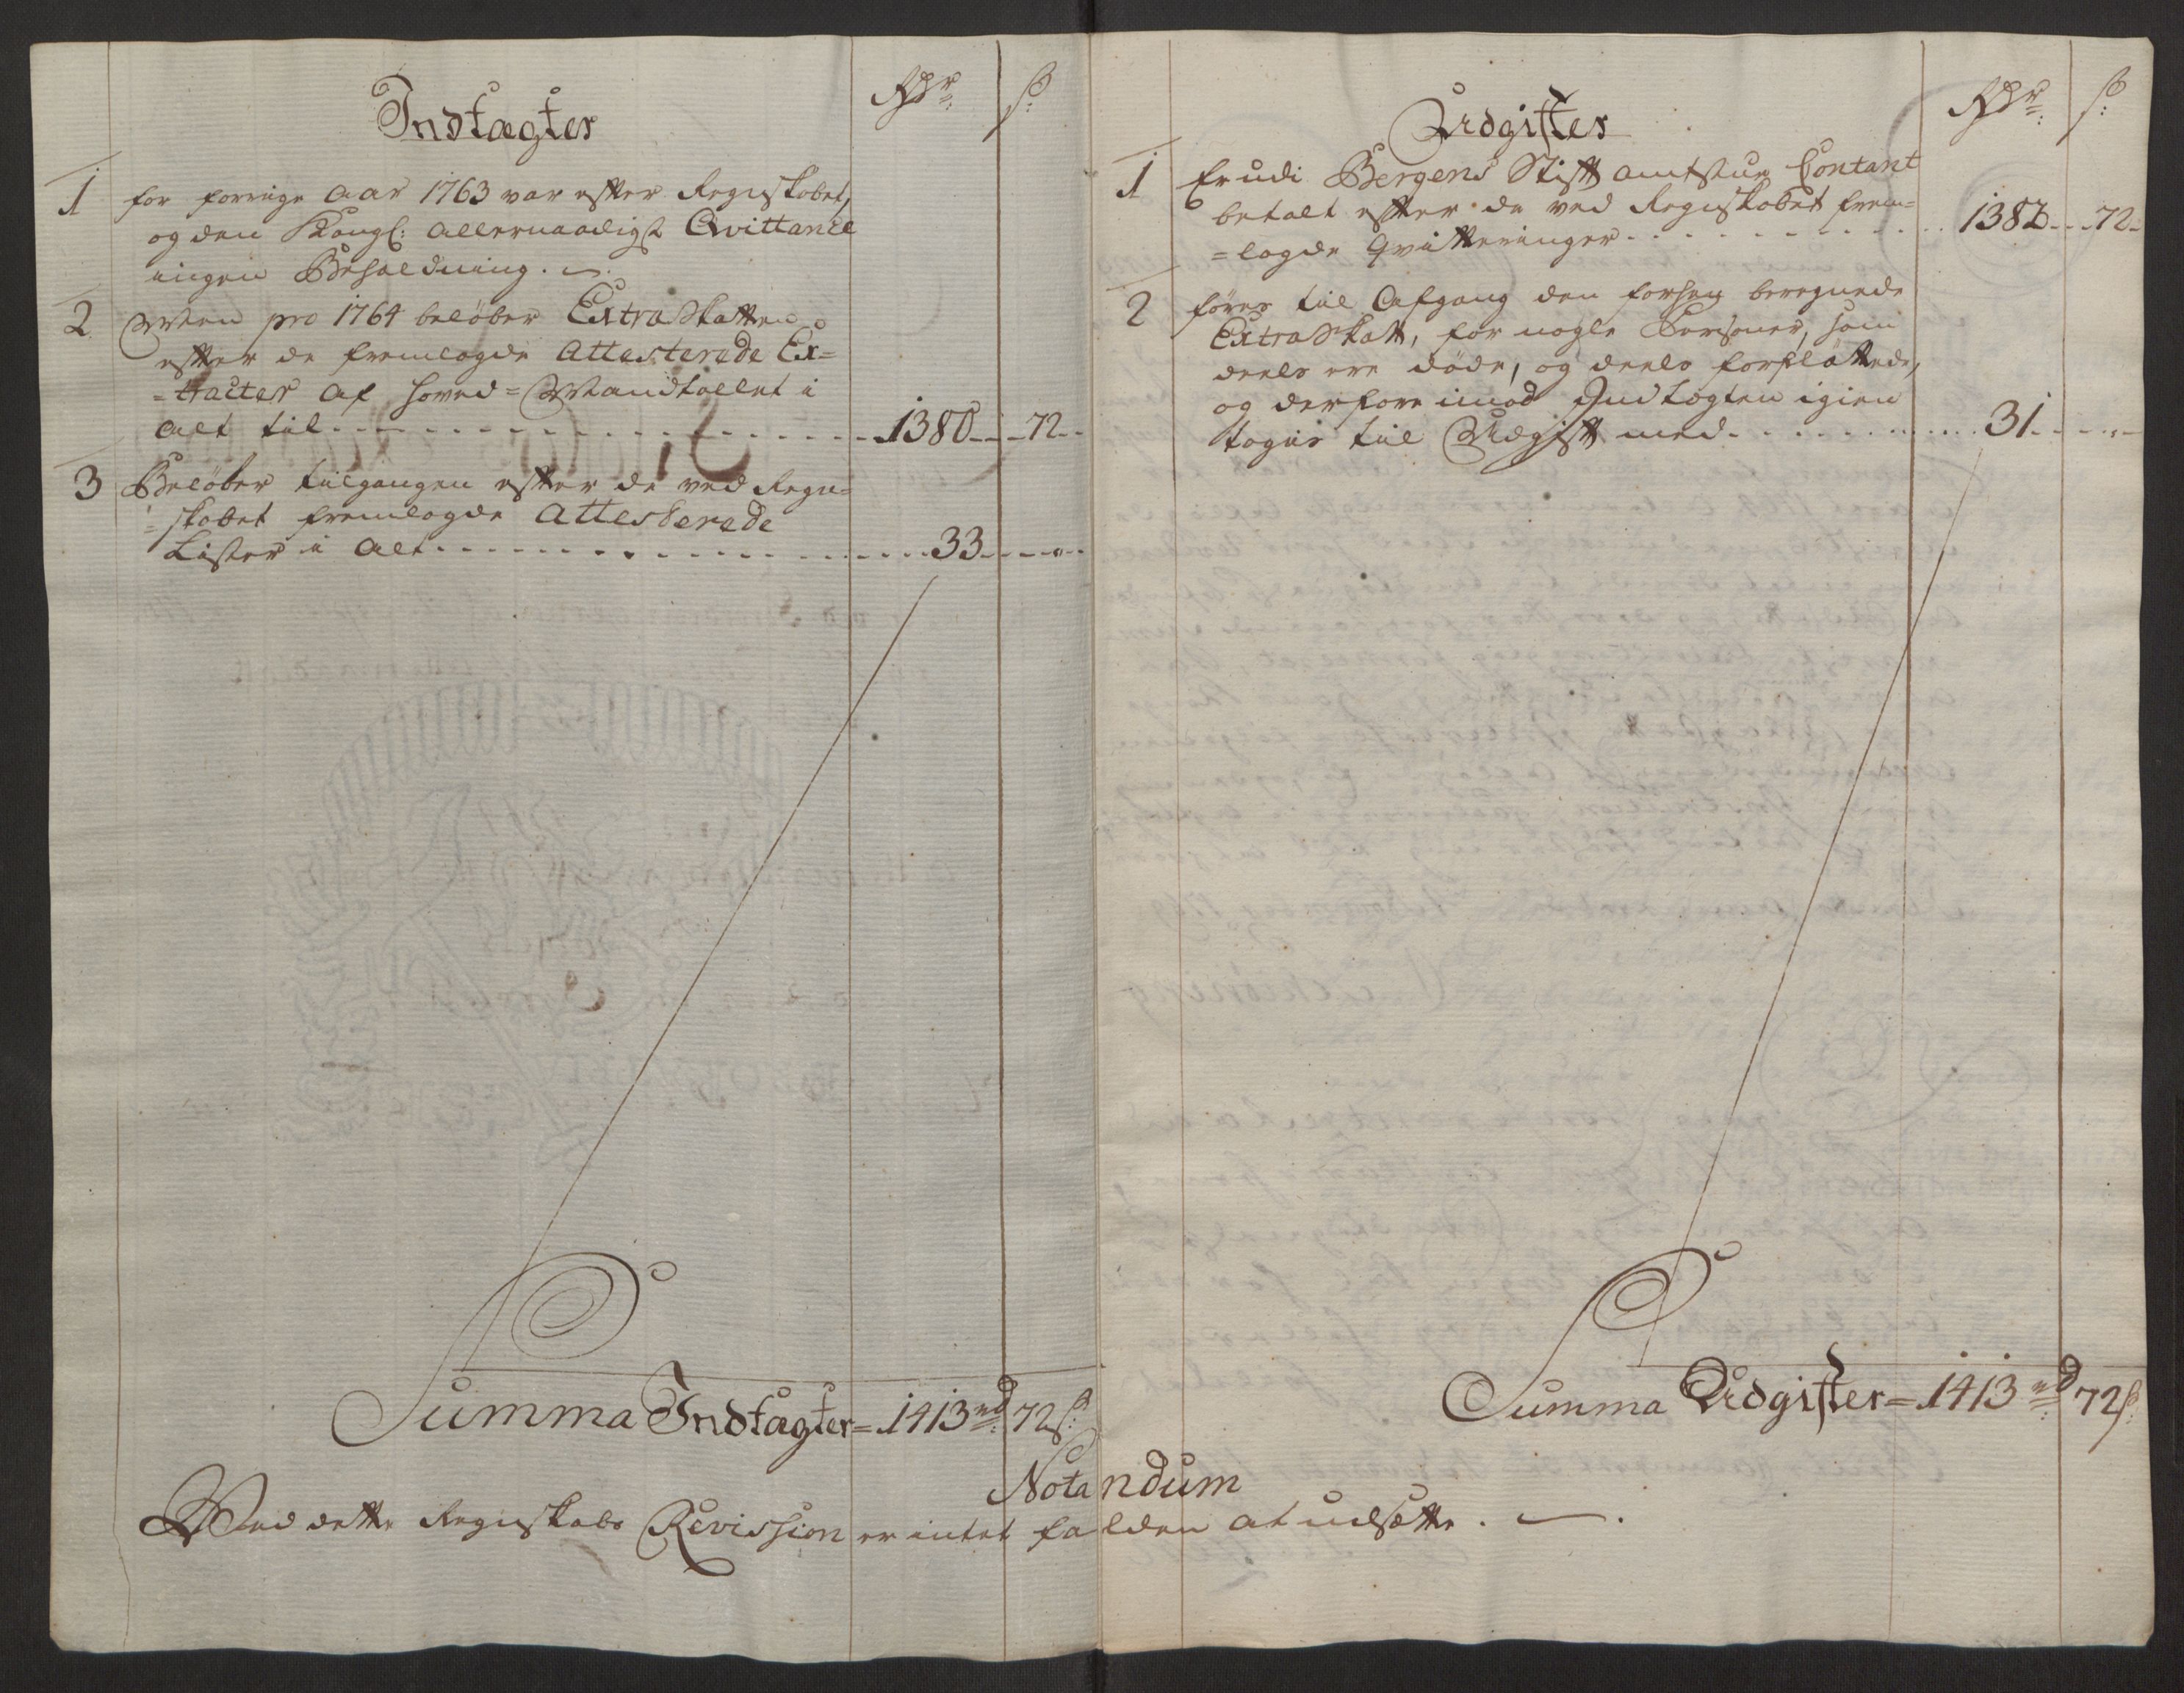 Indtægter
Rdr
ß:
1
for forrige Aar 1763 var efter Regnskabet,
og den Kongl: Allernaadigst Qvittance
ingen Beholdning.
2
Men pro 1764 beløber ExtraSkatten
efter de fremlagde Attesterede Ex=
=tracter af Hoved=Mandtallet i
Alt til 1380 72
3
Beløber tilgangen efter de ved Regn=
=skabet fremlagde Attesterede
Lister i Alt 33 "
Summa Indtægter= 1413 rd 72 ß:
Udgifter
Rdr
ß:
1
Er udi Bergens Stift Amtstue Contant
betalt efter de ved Regnskabet frem=
=lagde Qvitteringer 1382 72
2
føres til Afgang den forhen beregnede
ExtraSkatt, for nogle Personer, som
deels ere døde, og deels forfløttede,
og derfore imod Indtægten igien
tages til Udgift med 31 "
Summa Udgifter= 1413 rd 72 ß:
Notandum
Ved dette Regnskabs Revission er intet falden at udsætte.